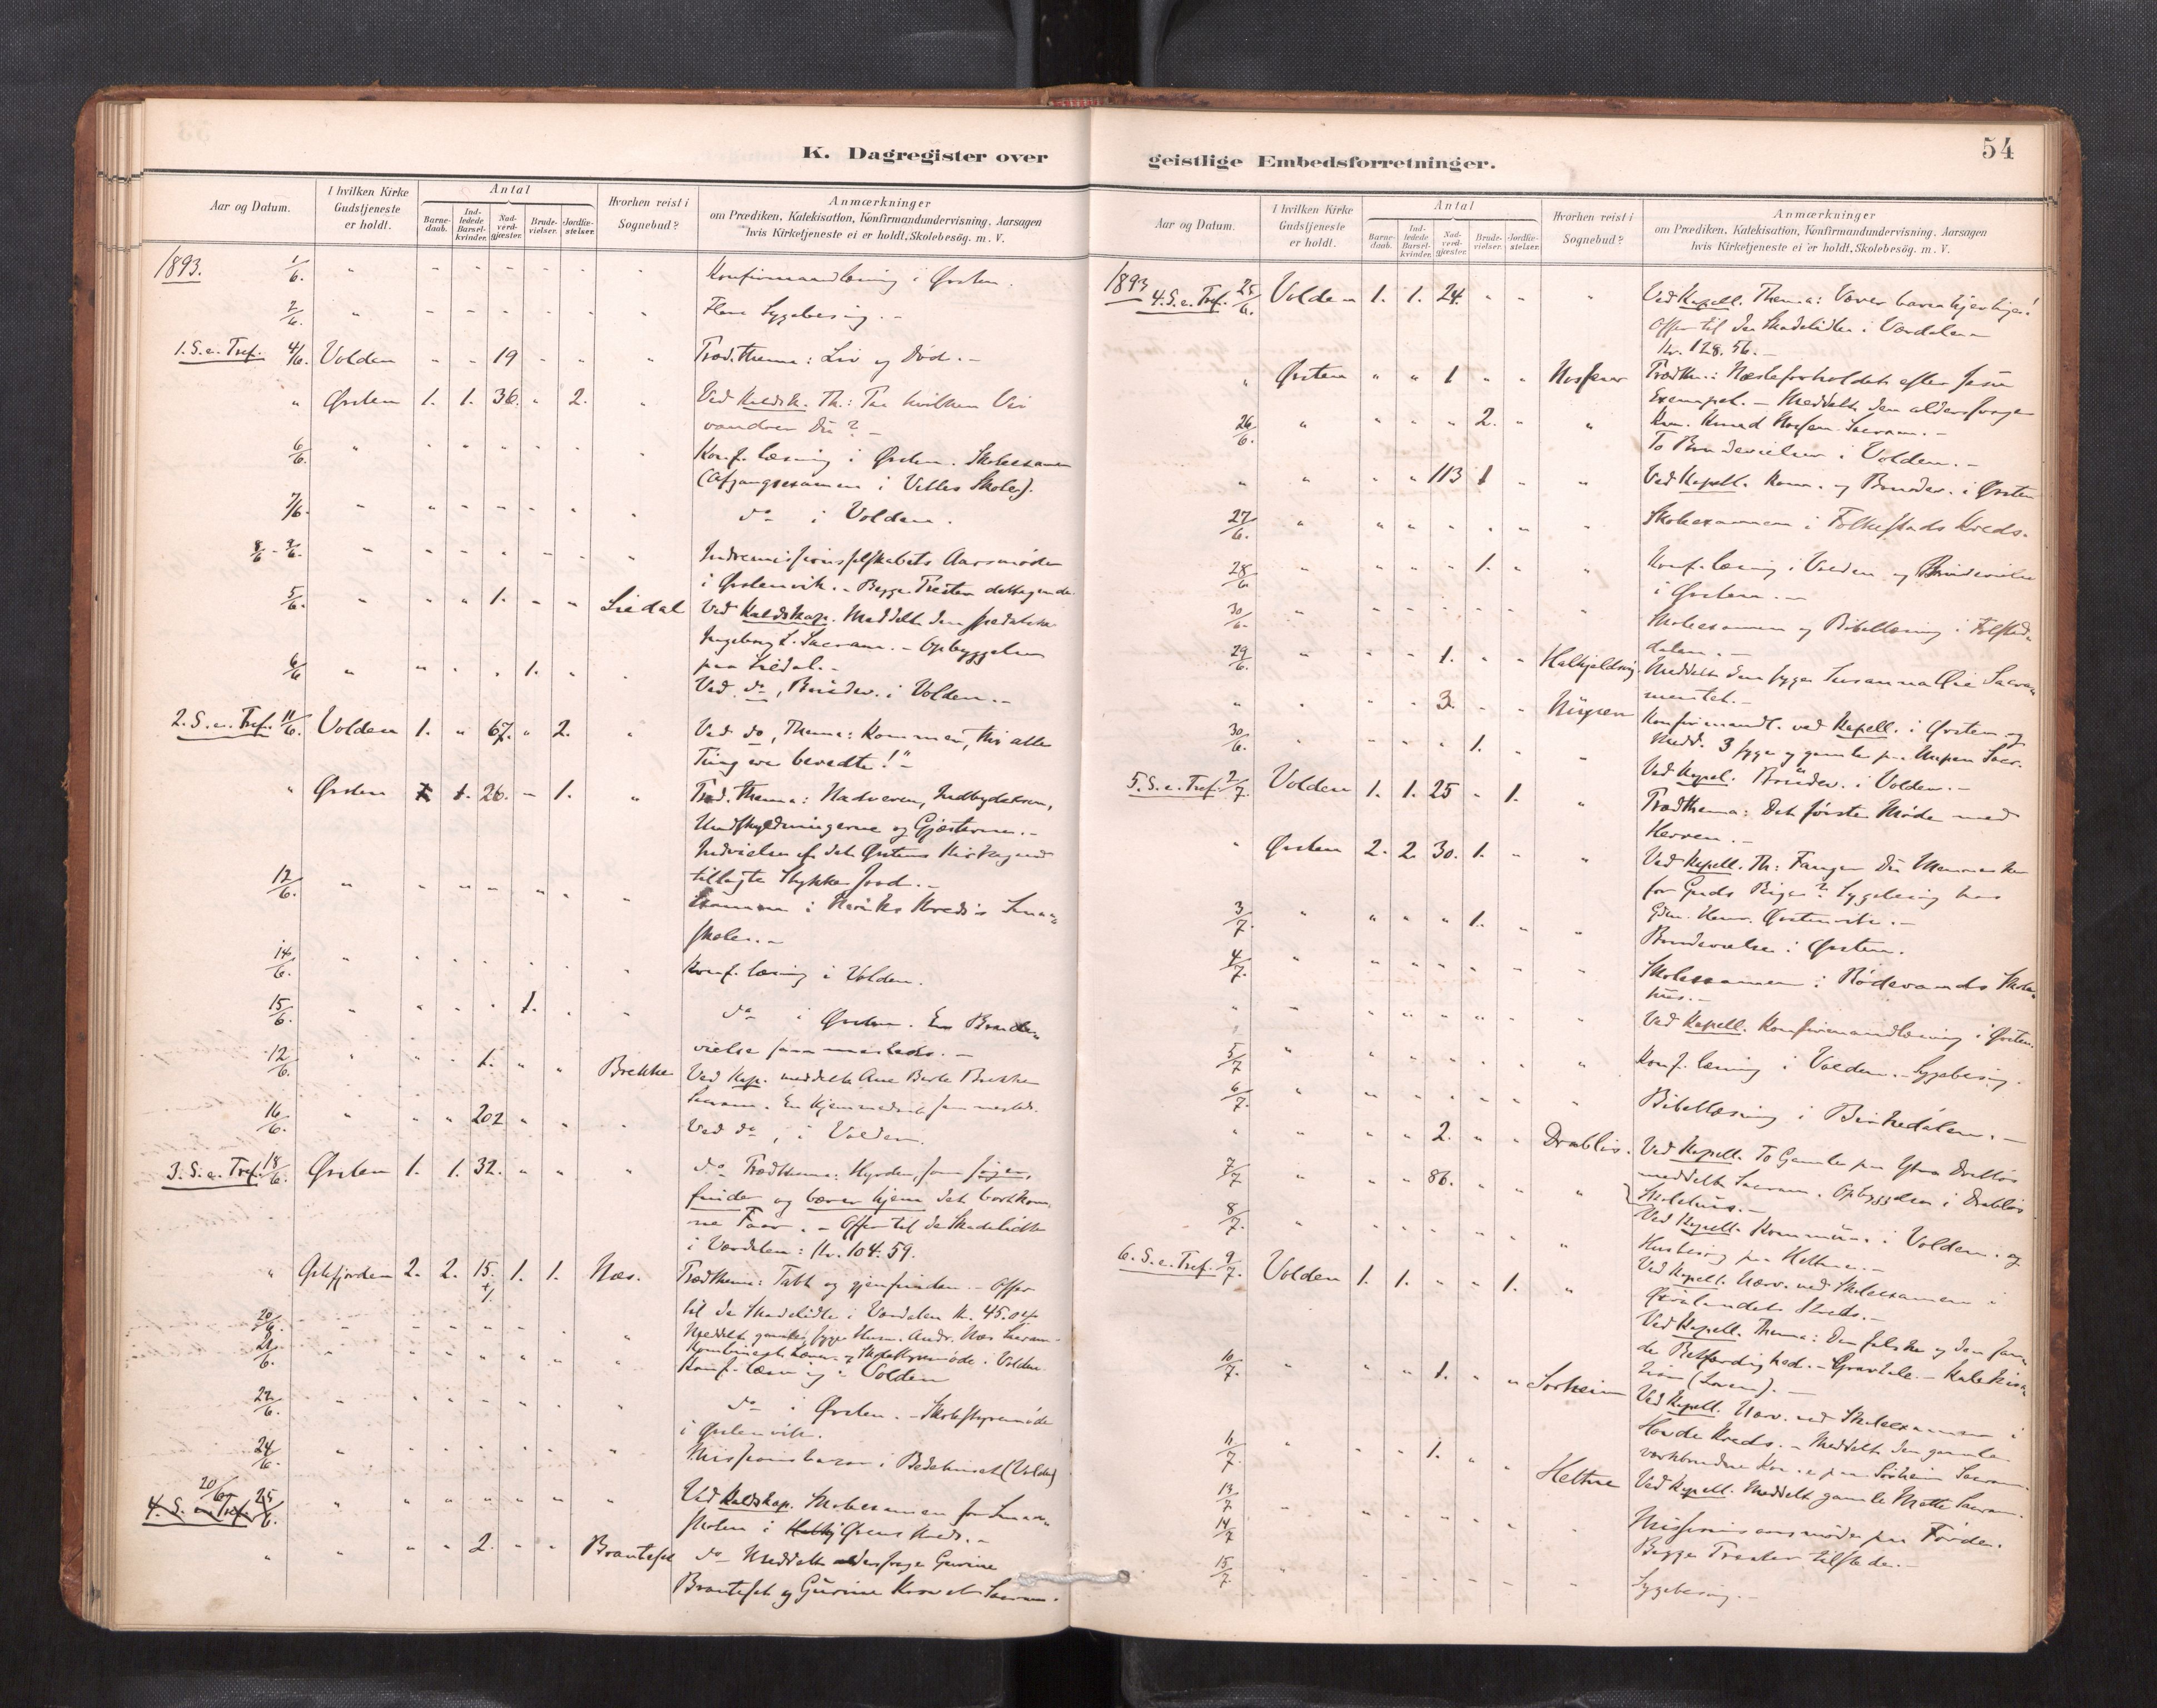 K. Dagregister over
Aar og Datum.
I hvilken Kirke
Gudstjeneste
er holdt.
Antal
Barne-
daab.
Ind-
ledede
Barsel-
kvinder.
Nad-
verd-
gjæster.
Brude-
vielser.
Jordfæ-
stelser.
Hvorhen reist i
Sognebud?
Anmærkninger
om Prædiken, Katekisation, Konfirmandundervisning, Aarsagen
hvis Kirketjeneste ei er holdt, Skolebesög. m. V.
1893. 1/6. Konfirmandlæsning i Ørsten.
2/6. Flere Sygebesøg. -
1. S. e. Tref. 4/6. Volden " " 19 " " " Præd. thema: Liv og Død. -
" Ørsten 1. 1. 36. " 2. " Ved Kaldsk. Th.: Paa hvilken Vei
vandrer Du? -
6/6. Konf. læsning i Ørsten. Skoleexamen
(Afgangsexamen i Velles Skoler).
7/6. do i Volden.
8/6 - 9/6. Indremissionsselskabets Aarsmøde
i Ørstenvik. - Begge Prester deltagende.
5/6. " " " 1. " " Liedal Ved Kaldskap. Meddelt den spedalske
Ingeborg L. Sacram. - Opbyggelse
paa Liedal. -
6/6 " " " " 1. " " Ved do, Brudev. i Volden. -
2. S. e. Tref. 11/6. Volden 1. " 67. " 2. " Ved do, Thema: Kommer, thi alle
Ting ere beredte!" -
" Ørsten 1. 1. 26. - 1. " Præd. thema: Nadveren, Indbydelsen,
Undskyldningerne og Gjæsterne. -
Indvielse af det Ørstens Kirkegaard
tillagte Stykke Jord. -
12/6. Examen i Kreds's Smaa-
skoler. -
14/6. Konf. læsning i Volden.
15/6. " " " " 1. " " do i Ørsten. En Brude-
vielse sammesteds. -
12/6. " " " 1. " " Brekke Ved Kap. meddelt Ane Brekke
Sacram. En Hjemmedaab sammesteds.
16/6. " " " 202 " " " Ved do, i Volden.
3. S. e. Tref. 18/6. Ørsten 1. 1. 32. " " " do Prædthema: Hyrden, som søger,
finder og bærer hjem det bortkom-
ne Faar. - Offer til de Skadelidte
i Værdalen: Kr. 104.59.
" Ørstefjorden 2. 2. 15. + 1. 1. 1. Næs. Prædthema: Tabt og gjenfunden. - Offer
til de Skadelidte i Værdalen Kr. 45.04
Meddelt gamle, syge Andr. Næs Sacram.
20/6. Skolestyremøde i Volden
21/6. Konf. læsning i Volden
22/6. do i Ørsten. - Skolestyremøde
i Ørstenvik.
24/6. Missionsbasar i Bedehuset (Volden)
20/6 4. S. e. Tref. 25/6. Ved Kaldskap. Skoleexamen for Smaa-
skolen i Kreds. -
" " " " 2. " " Brauteset do Meddelt aldersvage Gurine
Brauteset og Gurine Sacram.
geistlige Embedsforretninger.
54
Aar og Datum.
I hvilken Kirke
Gudstjeneste
er holdt.
Antal
Barne-
daab.
Ind-
ledede
Barsel-
kvinder.
Nad-
verd-
gjæster.
Brude-
vielser.
Jordfæ-
stelser.
Hvorhen reist i
Sognebud?
Anmærkninger
om Prædiken, Katekisation, Konfirmandundervisning, Aarsagen
hvis Kirketjeneste ei er holdt, Skolebesög. m. V.
1893 4. S. e. Tref. 25/6. Volden 1. 1. 24. " " " Ved Kapell. Thema: Værer barmhjertige!
Offer til de Skadelidte i Værdalen
Kr. 128.56. -
" Ørsten " " 1 " " Prædth.: Næsteforholdet efter Jesu
Exempel. - Meddelt den aldersvage
Knud Sacram. -
26/6. " " " " 2. " " To Brudevielser i Volden. -
" " " " 113 1 " " Ved Kapell. Kom. og Brudev. i Ørsten
27/6. Skoleexamen i Folkestads Kreds.
28/6 " " " " 1. " " Konf. læsning i Volden og Brudevielse
i Ørsten. -
30/6. Skoleexamen og Bibellæsning i
dalen. -
29/6. " " " 1. " " Halkjeldsvig. Meddelt den syge Susanna Øie Sacra-
mentet. -
" " " " 3. " " Konfirmandl. ved Kapell. i Ørsten og
Medd. 3 syge og gamle paa Sacr.
30/6. " " " " 1. " " Ved Kapel. Brudev. i Volden. -
5. S. e. Tref. 2/7. Volden 1. 1. 25 " 1. " Prædthema: Det første Møde med
Herren. -
" Ørsten 2. 2. 30. 1. " " Ved Kapell. Th: Fanger Du Mennesker
for Guds Rige? Sygebesøg hos
Ørstenvik. -
3/7. " " " " 1. " " Brudevielse i Ørsten.
4/7. Skoleexamen i Rødevands Skole-
hus. -
" Ved Kapell. Konfirmandlæsning i Ørsten.
5/7 Konf. læsning i Volden. - Sygebesøg.
6/7. Bibellæsning i Birkedalen. -
" " " " 2. " " Drabløs. Ved Kapell. To Gamle paa Ytre Drabløs
meddelt Sacram. Opbyggelse i Drabløs
Skolehus. -
7/7 " " " 86. " " " Ved Kapell. Kommun. i Volden. og
Husbesøg paa Heltne. -
8/7. Ved Kapell. Nærv. ved Skoleexamen i
Kreds. -
6. S. e. Tref. 9/7. Volden 1. 1. " " 1. " Ved Kapell. Thema: Den falske og den san-
de Retfærdighed. - Gravtale. - Katekisa-
tion (Loven). -
10/7. " " " 1. " " Sørheim Ved Kapell. Nærv. ved Skoleexamen i
Hovde Kreds. - Meddelt den gamle
værkbrudne Kone paa Sørheim Sacram.
11/7. " " " 1. " " Heltne Ved Kapell. Meddelt gamle Mette Sacram.
13/7 Missionsaarsmøde paa Førde.
14/7 Begge Prester tilstede. -
15/7. Sygebesøg. -